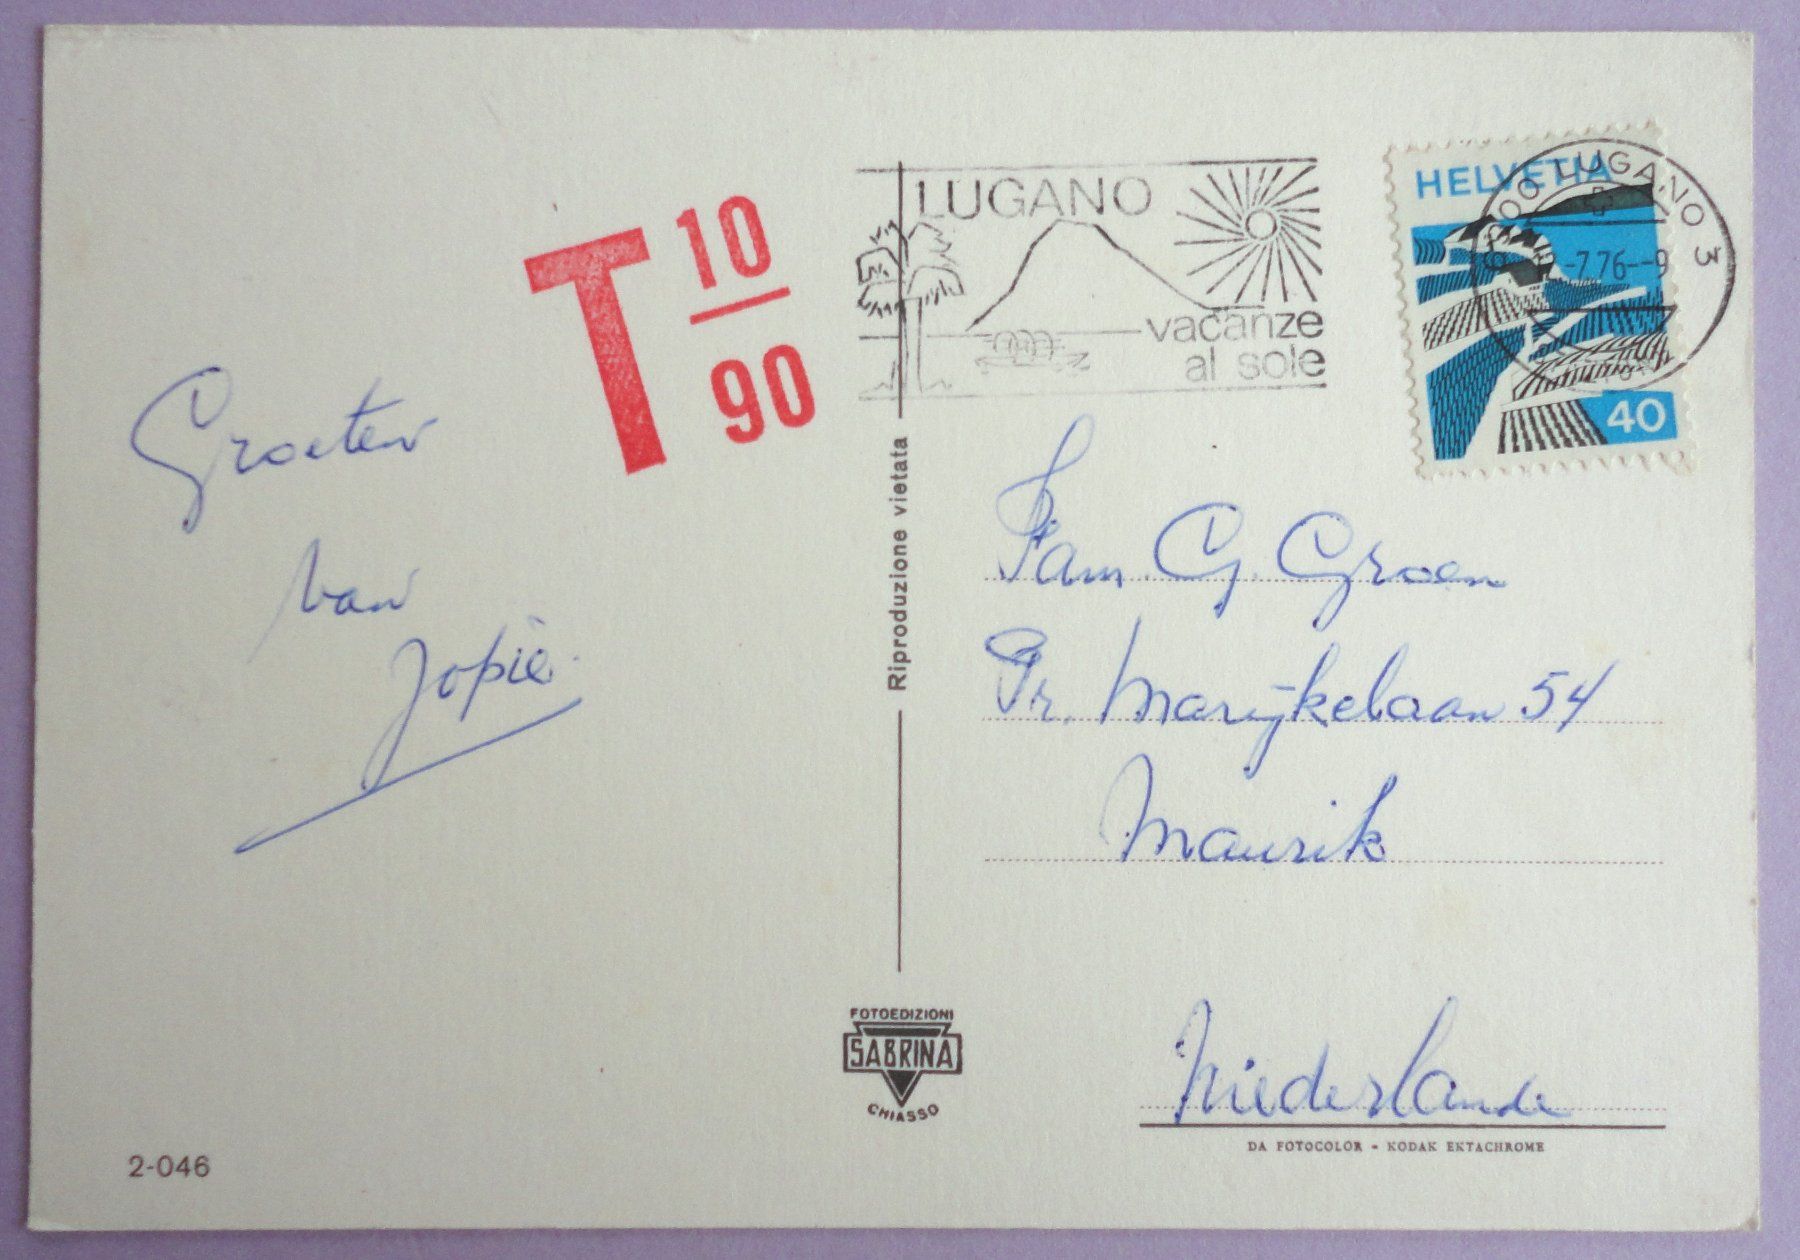 Groeten
van
Jopie.
T 10
90
LUGANO
vacanze
al sole
HELVETIA
40
LUGANO 3
-7.76--9
Riproduzione vietata
Fam. G. Groen
Pr. Marijkelaan 54
Maurik
Niederlande
FOTOEDIZIONI
SABRINA
CHIASSO
DA FOTOCOLOR - KODAK EKTACHROME
2-046